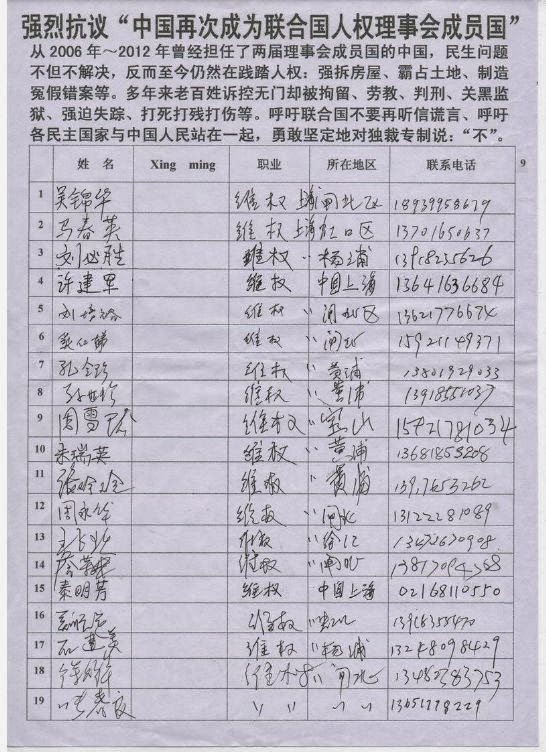 强烈抗议“中国再次成为联合国人权理事会成员国”
从2006年～2012年曾经担任了两届理事会成员国的中国，民生问题
不但不解决，反而至今仍然在践踏人权：强拆房屋、霸占土地、制造
冤假错案等。多年来老百姓诉控无门却被拘留、劳教、判刑、关黑监
狱、强迫失踪、打死打残打伤等。呼吁联合国不要再听信谎言、呼吁
各民主国家与中国人民站在一起，勇敢坚定地对独裁专制说：“不”。
姓 名 Xing ming 职业 所在地区 联系电话 9
1 吴锦华 维权 上海闸北区 18939958679
2 马春英 维权 上海虹口区 13701650637
3 刘必胜 维权 〃杨浦 13918235626
4 许建军 维权 中国上海 13641636684
5 维权 〃闸北区 13621776674
6 维权 〃闸北 15921149371
7 孔令珍 维权 〃黄浦 13801929033
8 维权 〃黄浦 13918551037
9 周雪珍 维权 〃宝山 15921781034
10 朱瑞英 维权 〃黄浦 13681859208
11 维权 〃黄浦
12 周永华 维权 〃闸北 13122281089
13 维权
14 维权 〃闸北
15 秦明芳 维权 中国上海 02168110550
16 维权 13918355470
17 石莲美 维权 〃杨浦 13248098429
18 〃闸北 13482583753
19 〃 〃 〃 〃 13651798229